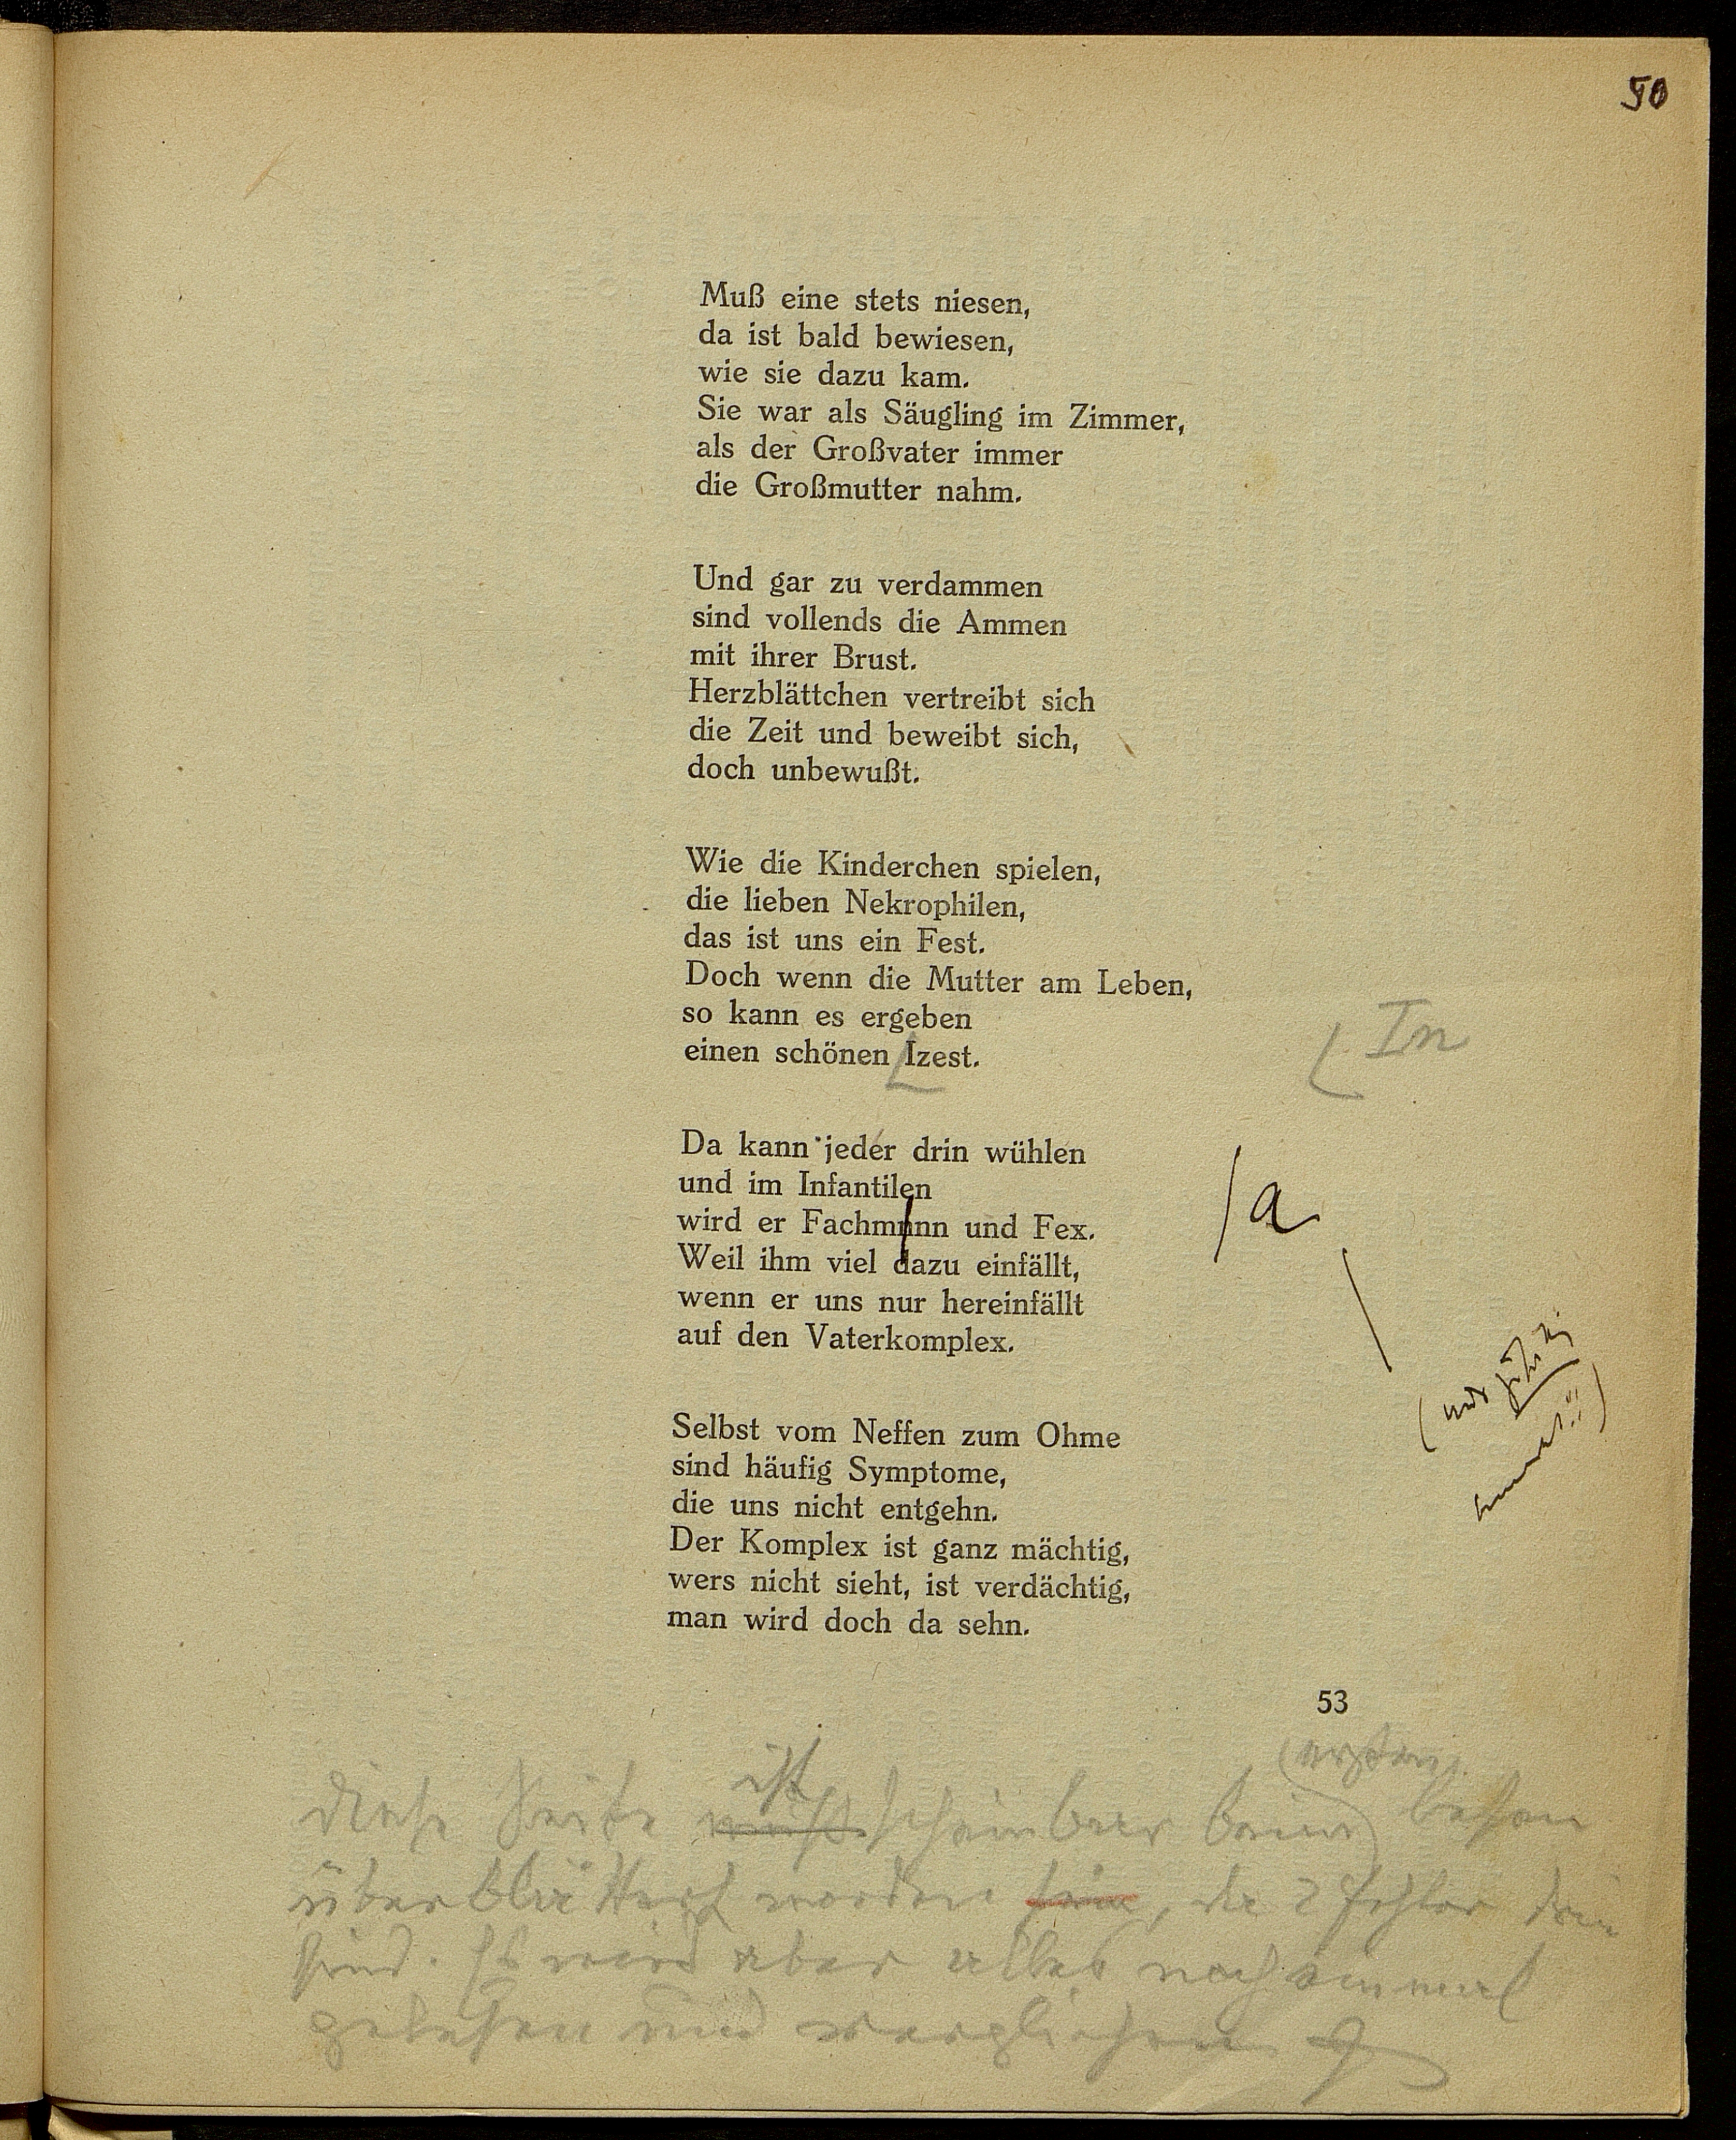 50
Muß eine stets niesen,
da ist bald bewiesen,
wie sie dazu kam.
Sie war als Säugling im Zimmer,
als der Großvater immer
die Großmutter nahm.
Und gar zu verdammen
sind vollends die Ammen
mit ihrer Brust.
Herzblättchen vertreibt sich
die Zeit und beweibt sich,
doch unbewußt.
Wie die Kinderchen spielen,
die lieben Nekrophilen,
das ist uns ein Fest.
Doch wenn die Mutter am Leben,
so kann es ergeben
einen schönen Izest.
In
Da kann jeder drin wühlen
und im Infantilen
wird er Fachmnnn und Fex.
a
Weil ihm viel dazu einfällt,
wenn er uns nur hereinfällt
auf den Vaterkomplex.
Selbst vom Neffen zum Ohme
sind häufig Symptome,
die uns nicht entgehn.
Der Komplex ist ganz mächtig,
wers nicht sieht, ist verdächtig,
man wird doch da sehn.
53
ist (ersten)
diese Seite muß scheinbar beim lesen
überblättert worden sein, da 2 Fehler drin
sind. Es wird aber alles noch einmal
gelesen und verglichen